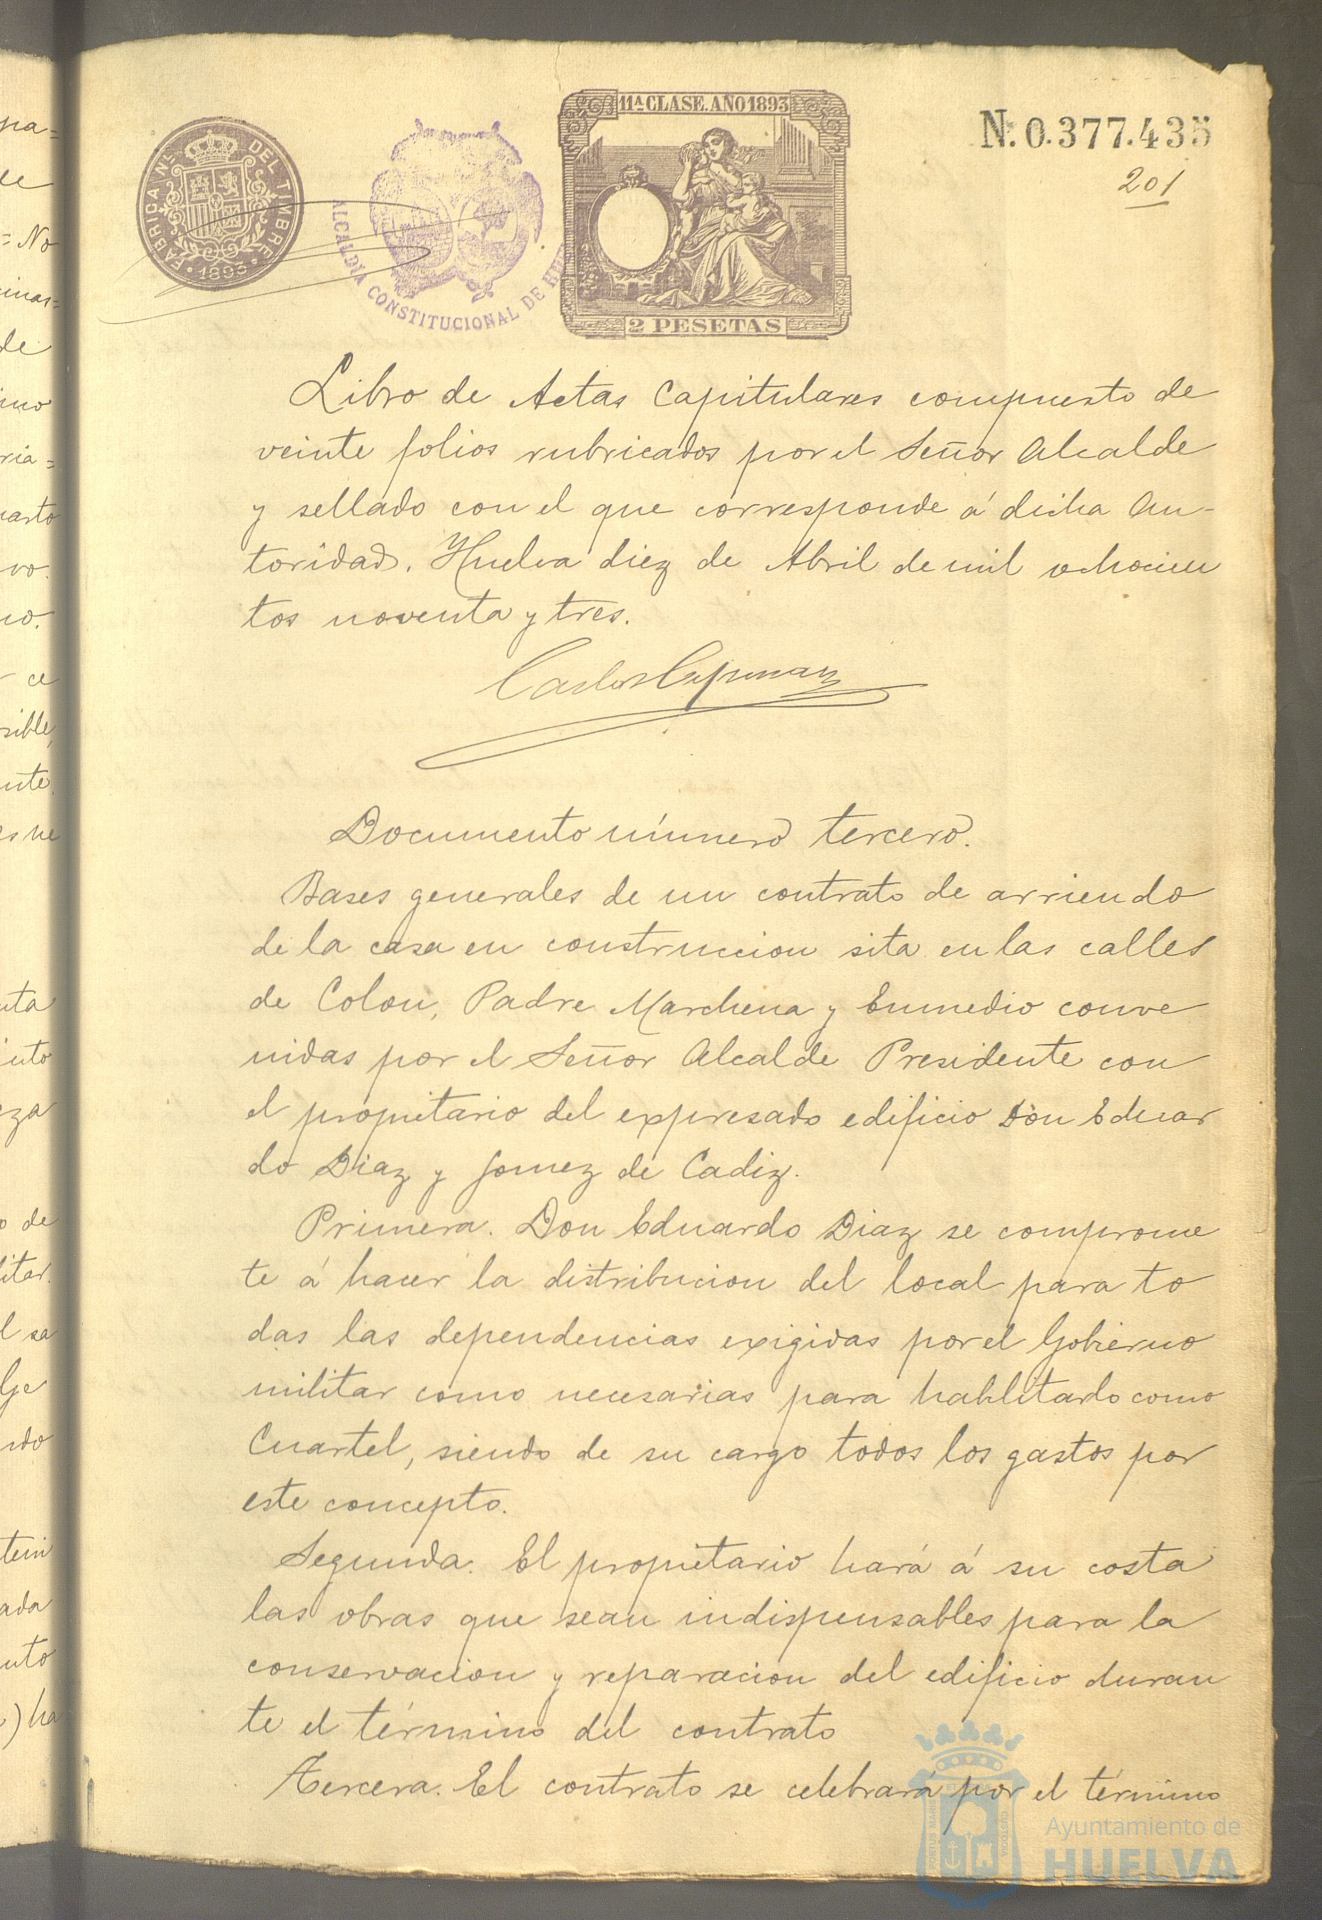 FABRICA NL. DEL TIMBRE
1893
ALCALDIA CONSTITUCIONAL DE HUE
11ª CLASE. AÑO 1893
2 PESETAS
N. 0.377.435
201
Libro de Actas Capitulares compuesto de
veinte folios rubricados por el Señor Alcalde
y sellado con el que corresponde á dicha Au-
toridad. Huelva diez de Abril de mil ochocien
tos noventa y tres.
Carlos
Documento número tercero.
Bases generales de un contrato de arriendo
de la casa en construccion sita en las calles
de Colon, Padre Marchena y Enmedio conve
nidas por el Señor Alcalde Presidente con
el propietario del expresado edificio Don Eduar
do Diaz y Gomez de Cadiz.
Primera. Don Eduardo Diaz se comprome
te á hacer la distribucion del local para to
das las dependencias exigidas por el Gobierno
militar como necesarias para hablitarlo como
Cuartel, siendo de su cargo todos los gastos por
este concepto.
Segunda. El propietario hará á su costa
las obras que sean indispensables para la
conservacion y reparacion del edificio duran
te el término del contrato
Tercera. El contrato se celebrará por el término
Ayuntamiento de
HUELVA
pa=
de
= No
de
ria=
uarto
vo.
no.
ce
sible,
nte.
nta
ento
eza
o de
litar.
l sa
Ge
rdo
tein
ada
nto
) ha